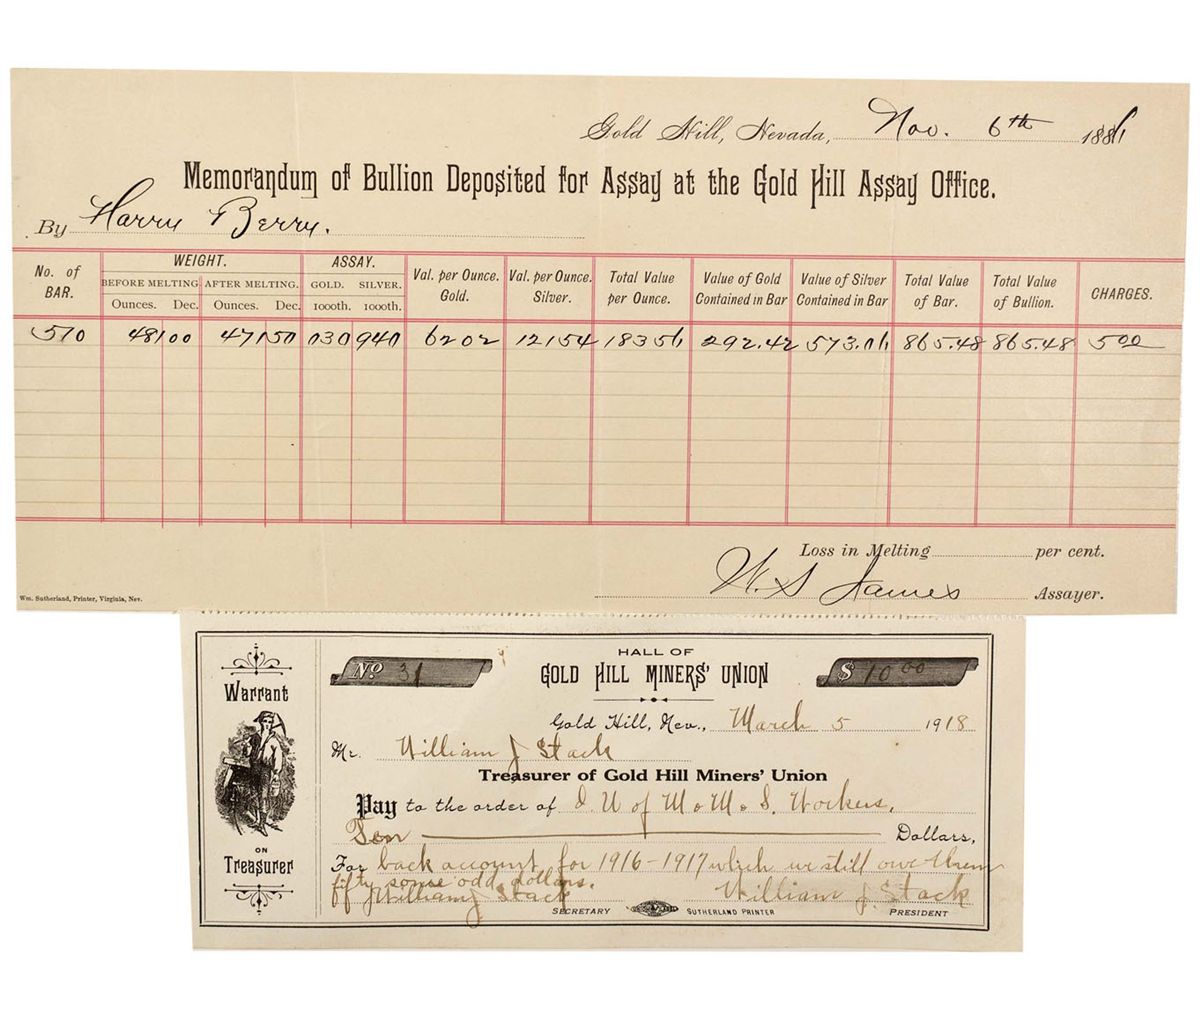 Gold Hill, Nevada, Nov. 6th 1886
Memorandum of Bullion Deposited for Assay at the Gold Hill Assay Office.
By Harry Berry.
No. of BAR. WEIGHT. ASSAY. Val. per Ounce. Gold. Val. per Ounce. Silver. Total Value per Ounce. Value of Gold Contained in Bar Value of Silver Contained in Bar Total Value of Bar. Total Value of Bullion. CHARGES.
BEFORE MELTING AFTER MELTING. GOLD. SILVER.
Ounces. Dec. Ounces. Dec. 1000th. 1000th.
510 481 00 471 50 030 940 6202 12154 18356 292.42 573.06 865.48 865.48 5 00
Loss in Melting per cent.
W. S James Assayer.
Wm. Sutherland, Printer, Virginia, Nev.
Warrant
ON
Treasurer
HALL OF
No 31 GOLD HILL MINERS' UNION $ 10 00
Gold Hill, Nev., March 5 1918
Mr. William J Stack
Treasurer of Gold Hill Miners' Union
Pay to the order of I. U of M. M. S. Workers,
Ten Dollars,
For back account for 1916-1917 which we still owe them
fifty some odd dollars.
William J Stack William J. Stack
SECRETARY SUTHERLAND PRINTER PRESIDENT